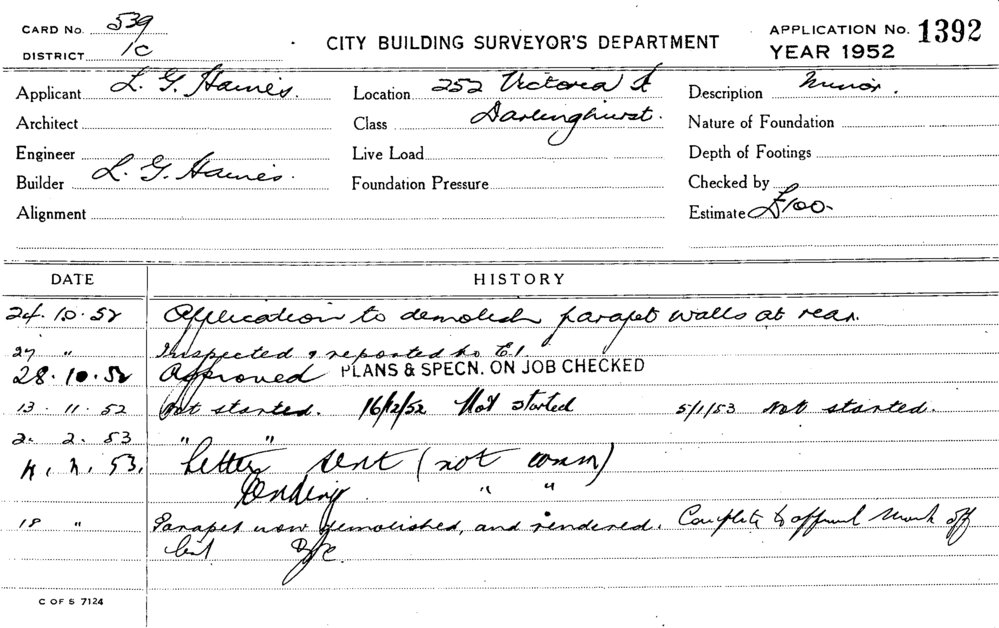 CARD No. 539
DISTRICT 1c
CITY BUILDING SURVEYOR'S DEPARTMENT
APPLICATION No. 1392
YEAR 1952
Applicant L. G. Haines.
Location 252 Victoria St
Description Minor.
Architect
Class Darlinghurst.
Nature of Foundation
Engineer
Live Load
Depth of Footings
Builder L. G. Haines.
Foundation Pressure
Checked by
Alignment
Estimate £100-
DATE HISTORY
24.10.52 Application to demolish parapet walls at rear.
27 " Inspected & reported to E1.
28.10.52 Approved PLANS & SPECN. ON JOB CHECKED
13.11.52 Not started. 16/12/52 Not started 5/1/53 Not started.
2.2.53 " "
53. Letter sent (not comm)
" "
18 " Parapet now demolished, and rendered. Complete to approval Mark off
C OF S 7124